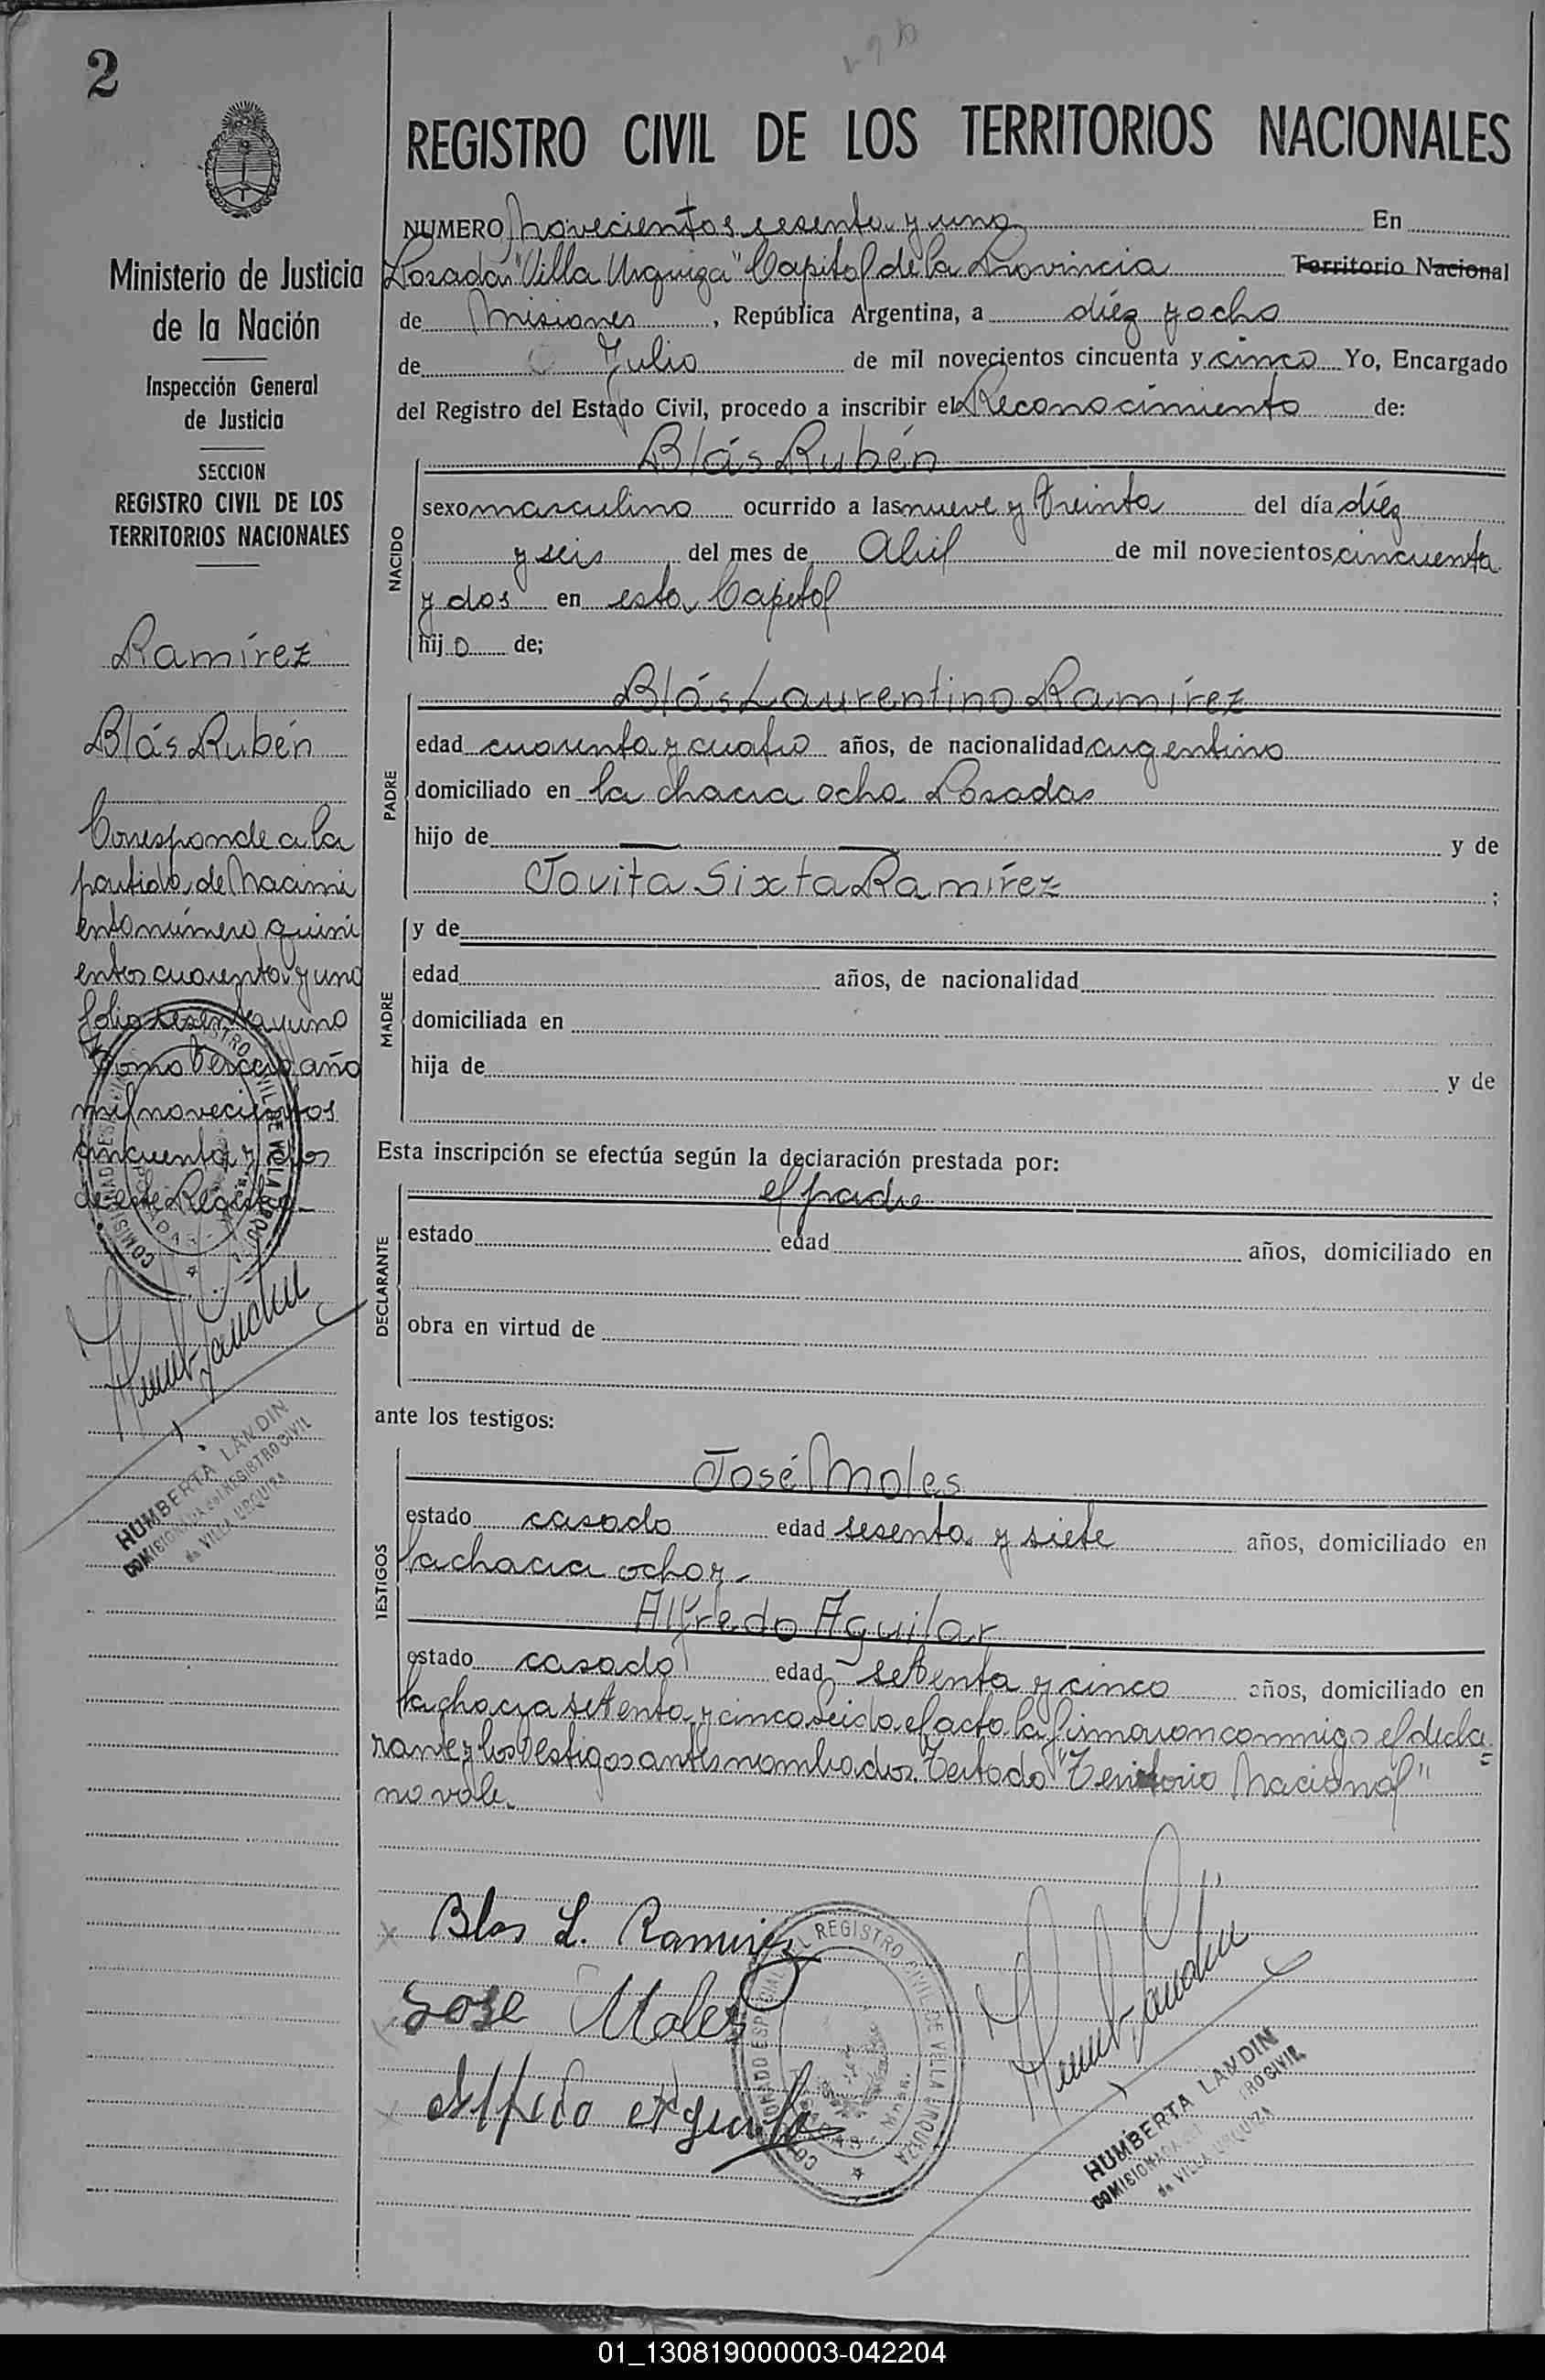 2
REGISTRO CIVIL DE LOS TERRITORIOS NACIONALES
Ministerio de Justicia
de la Nación
Inspección General
de Justicia
SECCION
REGISTRO CIVIL DE LOS
TERRITORIOS NACIONALES
Ramírez
Blás Rubén
Corresponde a la
partida de Nacimi
ento número quini
entos cuarenta y uno
folio sesenta y uno
tomo tercero año
mil novecientos
cincuenta y dos
de este Registro.-
HUMBERTA LANDIN
COMISIONADA del REGISTRO CIVIL
de VILLA URQUIZA
NUMERO Novecientos sesenta y uno En
Posadas "Villa Urquiza" Capital de la Provincia Territorio Nacional
de Misiones, República Argentina, a diéz y ocho
de Julio de mil novecientos cincuenta y cinco Yo, Encargado
del Registro del Estado Civil, procedo a inscribir el Reconocimiento de:
NACIDO
Blás Rubén
sexo masculino ocurrido a las nueve y treinta del día diéz
y seis del mes de Abril de mil novecientos cincuenta
y dos en esta Capital
hijo de;
PADRE
Blás Laurentino Ramírez
edad cuarenta y cuatro años, de nacionalidad argentino
domiciliado en la chacra ocho Posadas
hijo de y de
Jovita Sixta Ramírez ;
MADRE
y de
edad años, de nacionalidad
domiciliada en
hija de y de
Esta inscripción se efectúa según la declaración prestada por:
DECLARANTE
el padre
estado edad años, domiciliado en
obra en virtud de
ante los testigos:
TESTIGOS
José Moles
estado casado edad sesenta y siete años, domiciliado en
la chacra ocho y.-
Alfredo Aguilar
estado casado edad setenta y cinco años, domiciliado en
la chacra setenta y cinco Leída el acto la firmaron conmigo el decla=
rante y los testigos antes nombrados. Testado "Territorio Nacional"
no vale.
Blas L. Ramirez
Jose Moles
Alfredo Aguilar
REGISTRO CIVIL DE VILLA URQUIZA
HUMBERTA LANDIN
de VILLA URQUIZA
01_130819000003-042204